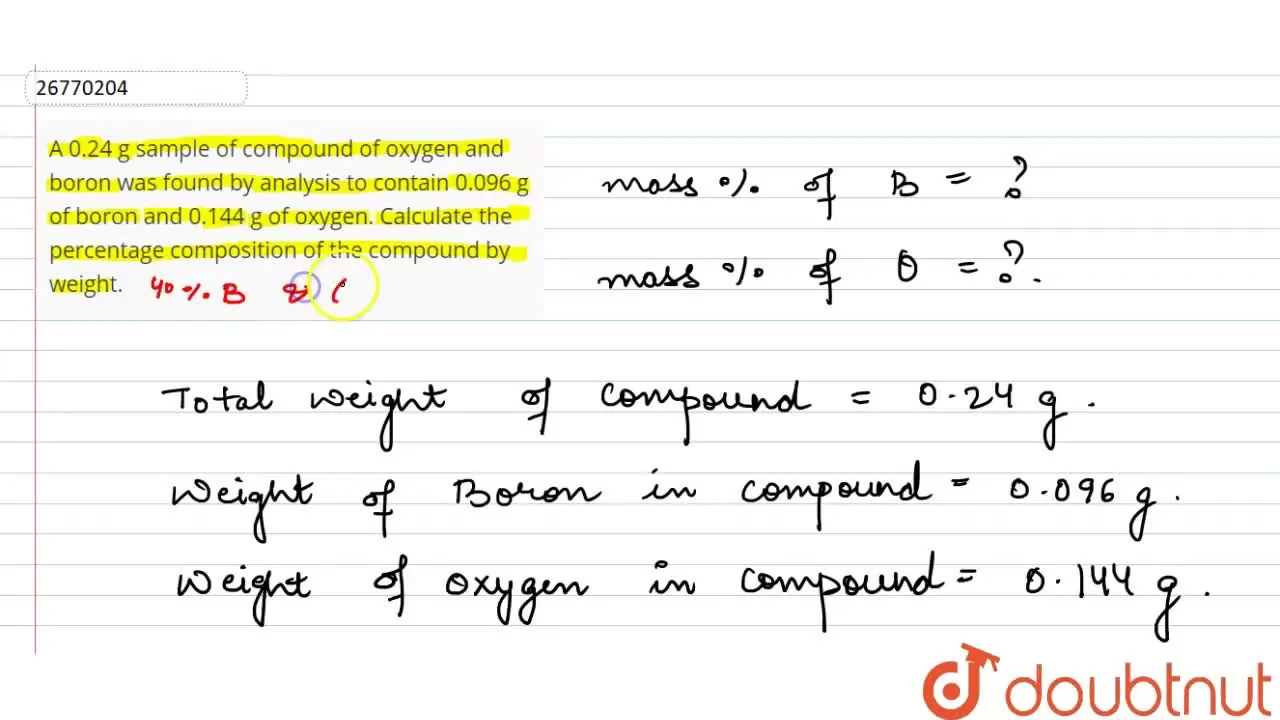 26770204
A 0.24 g sample of compound of oxygen and
boron was found by analysis to contain 0.096 g
of boron and 0.144 g of oxygen. Calculate the
percentage composition of the compound by
weight. 40 % B & (
mass % of B = ?
mass % of O = ?.
Total weight of compound = 0.24 g.
Weight of Boron in compound = 0.096 g.
Weight of oxygen in compound = 0.144 g.
doubtnut